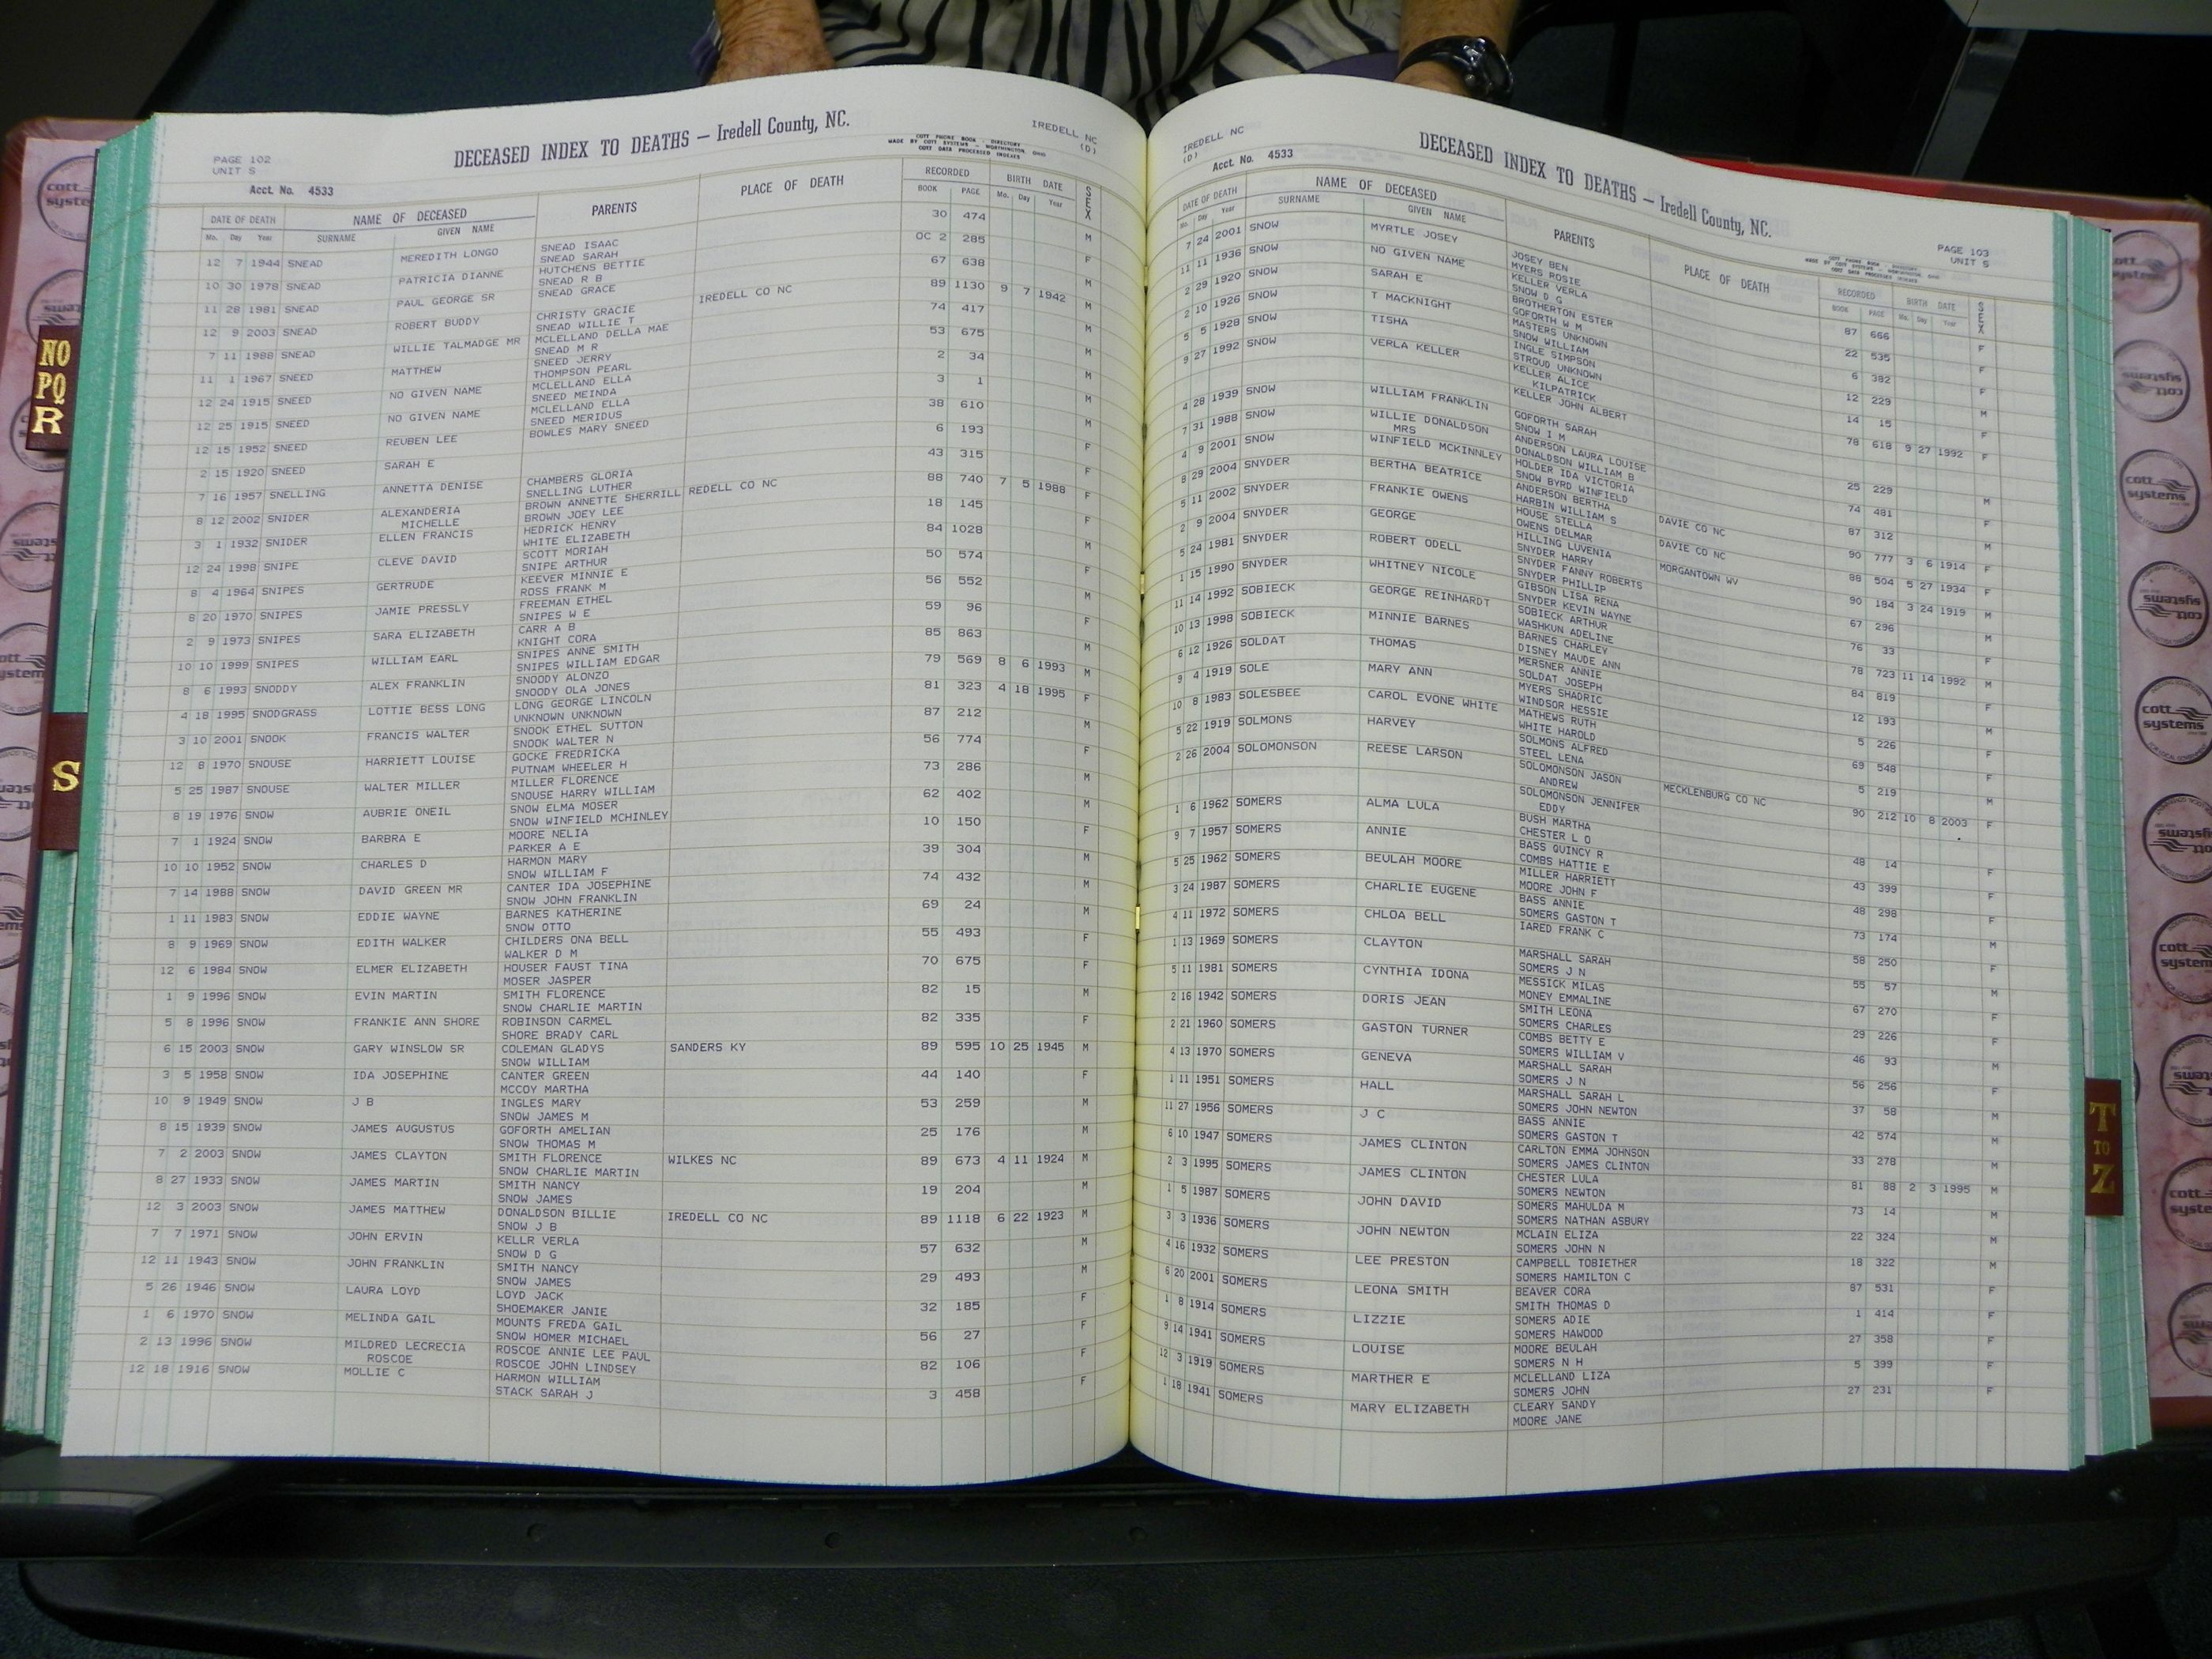 PAGE 102
UNIT S
DECEASED INDEX TO DEATHS — Iredell County, NC.
MADE BY COTT SYSTEMS - WORTHINGTON, OHIO
COTT DATA PROCESSED INDEXES
IREDELL NC
(D)
Acct. No. 4533
DATE OF DEATH NAME OF DECEASED PARENTS PLACE OF DEATH RECORDED BIRTH DATE SEX
Mo. Day Year SURNAME GIVEN NAME BOOK PAGE Mo. Day Year
12 7 1944 SNEAD MEREDITH LONGO SNEAD ISAAC 30 474 M
SNEAD SARAH
10 30 1978 SNEAD PATRICIA DIANNE HUTCHENS BETTIE OC 2 285 F
SNEAD R B
11 28 1981 SNEAD PAUL GEORGE SR SNEAD GRACE 67 638 M
12 9 2003 SNEAD ROBERT BUDDY CHRISTY GRACIE IREDELL CO NC 89 1130 9 7 1942 M
SNEAD WILLIE T
7 11 1988 SNEAD WILLIE TALMADGE MR MCLELLAND DELLA MAE 74 417 M
SNEAD M R
11 1 1967 SNEED MATTHEW SNEED JERRY 53 675 M
THOMPSON PEARL
12 24 1915 SNEED NO GIVEN NAME MCLELLAND ELLA 2 34 M
SNEED MEINDA
12 25 1915 SNEED NO GIVEN NAME MCLELLAND ELLA 3 1 M
SNEED MERIDUS
12 15 1952 SNEED REUBEN LEE BOWLES MARY SNEED 38 610 M
2 15 1920 SNEED SARAH E 6 193 F
7 16 1957 SNELLING ANNETTA DENISE CHAMBERS GLORIA 43 315 F
SNELLING LUTHER
8 12 2002 SNIDER ALEXANDERIA BROWN ANNETTE SHERRILL REDELL CO NC 88 740 7 5 1988 F
MICHELLE BROWN JOEY LEE
3 1 1932 SNIDER ELLEN FRANCIS HEDRICK HENRY 18 145 F
WHITE ELIZABETH
12 24 1998 SNIPE CLEVE DAVID SCOTT MORIAH 84 1028 M
SNIPE ARTHUR
8 4 1964 SNIPES GERTRUDE KEEVER MINNIE E 50 574 F
ROSS FRANK M
8 20 1970 SNIPES JAMIE PRESSLY FREEMAN ETHEL 56 552 M
SNIPES W E
2 9 1973 SNIPES SARA ELIZABETH CARR A B 59 96 F
KNIGHT CORA
10 10 1999 SNIPES WILLIAM EARL SNIPES ANNE SMITH 85 863 M
SNIPES WILLIAM EDGAR
8 6 1993 SNODDY ALEX FRANKLIN SNOODY ALONZO 79 569 8 6 1993 M
SNOODY OLA JONES
4 18 1995 SNODGRASS LOTTIE BESS LONG LONG GEORGE LINCOLN 81 323 4 18 1995 F
UNKNOWN UNKNOWN
3 10 2001 SNOOK FRANCIS WALTER SNOOK ETHEL SUTTON 87 212
SNOOK WALTER N
12 8 1970 SNOUSE HARRIETT LOUISE GOCKE FREDRICKA 56 774 F
PUTNAM WHEELER H
5 25 1987 SNOUSE WALTER MILLER MILLER FLORENCE 73 286 M
SNOUSE HARRY WILLIAM
8 19 1976 SNOW AUBRIE ONEIL SNOW ELMA MOSER 62 402 M
SNOW WINFIELD MCHINLEY
7 1 1924 SNOW BARBRA E MOORE NELIA 10 150 F
PARKER A E
10 10 1952 SNOW CHARLES D HARMON MARY 39 304 M
SNOW WILLIAM F
7 14 1988 SNOW DAVID GREEN MR CANTER IDA JOSEPHINE 74 432 M
SNOW JOHN FRANKLIN
1 11 1983 SNOW EDDIE WAYNE BARNES KATHERINE 69 24 M
SNOW OTTO
8 9 1969 SNOW EDITH WALKER CHILDERS ONA BELL 55 493 F
WALKER D M
12 6 1984 SNOW ELMER ELIZABETH HOUSER FAUST TINA 70 675 F
MOSER JASPER
1 9 1996 SNOW EVIN MARTIN SMITH FLORENCE 82 15 M
SNOW CHARLIE MARTIN
5 8 1996 SNOW FRANKIE ANN SHORE ROBINSON CARMEL 82 335 F
SHORE BRADY CARL
6 15 2003 SNOW GARY WINSLOW SR COLEMAN GLADYS SANDERS KY 89 595 10 25 1945 M
SNOW WILLIAM
3 5 1958 SNOW IDA JOSEPHINE CANTER GREEN 44 140 F
MCCOY MARTHA
10 9 1949 SNOW J B INGLES MARY 53 259 M
SNOW JAMES M
8 15 1939 SNOW JAMES AUGUSTUS GOFORTH AMELIAN 25 176 M
SNOW THOMAS M
7 2 2003 SNOW JAMES CLAYTON SMITH FLORENCE WILKES NC 89 673 4 11 1924 M
SNOW CHARLIE MARTIN
8 27 1933 SNOW JAMES MARTIN SMITH NANCY 19 204 M
SNOW JAMES
12 3 2003 SNOW JAMES MATTHEW DONALDSON BILLIE IREDELL CO NC 89 1118 6 22 1923 M
SNOW J B
7 7 1971 SNOW JOHN ERVIN KELLR VERLA 57 632 M
SNOW D G
12 11 1943 SNOW JOHN FRANKLIN SMITH NANCY 29 493 M
SNOW JAMES
5 26 1946 SNOW LAURA LOYD LOYD JACK 32 185 F
SHOEMAKER JANIE
1 6 1970 SNOW MELINDA GAIL MOUNTS FREDA GAIL 56 27 F
SNOW HOMER MICHAEL
2 13 1996 SNOW MILDRED LECRECIA ROSCOE ANNIE LEE PAUL 82 106 F
ROSCOE ROSCOE JOHN LINDSEY
12 18 1916 SNOW MOLLIE C HARMON WILLIAM 3 458 F
STACK SARAH J
IREDELL NC
(D)
DECEASED INDEX TO DEATHS — Iredell County, NC.
PAGE 103
UNIT S
Acct. No. 4533
DATE OF DEATH NAME OF DECEASED PARENTS PLACE OF DEATH RECORDED BIRTH DATE SEX
Mo. Day Year SURNAME GIVEN NAME BOOK PAGE Mo. Day Year
7 24 2001 SNOW MYRTLE JOSEY JOSEY BEN 87 666 F
MYERS ROSIE
11 11 1936 SNOW NO GIVEN NAME KELLER VERLA 22 535 F
SNOW D G
2 29 1920 SNOW SARAH E BROTHERTON ESTER 6 382 F
GOFORTH W M
2 10 1926 SNOW T MACKNIGHT MASTERS UNKNOWN 12 229 M
SNOW WILLIAM
5 5 1928 SNOW TISHA INGLE SIMPSON 14 15 F
STROUD UNKNOWN
9 27 1992 SNOW VERLA KELLER KELLER ALICE 78 618 9 27 1992 F
KILPATRICK
KELLER JOHN ALBERT
4 28 1939 SNOW WILLIAM FRANKLIN GOFORTH SARAH 25 229 M
SNOW I M
7 31 1988 SNOW WILLIE DONALDSON ANDERSON LAURA LOUISE 74 481 F
MRS DONALDSON WILLIAM B
4 9 2001 SNOW WINFIELD MCKINNLEY HOLDER IDA VICTORIA 87 312 M
SNOW BYRD WINFIELD
8 29 2004 SNYDER BERTHA BEATRICE ANDERSON BERTHA DAVIE CO NC 90 777 3 6 1914 F
HARBIN WILLIAM S
5 11 2002 SNYDER FRANKIE OWENS HOUSE STELLA DAVIE CO NC 88 504 5 27 1934 F
OWENS DELMAR
2 9 2004 SNYDER GEORGE HILLING LUVENIA MORGANTOWN WV 90 184 3 24 1919 M
SNYDER HARRY
5 24 1981 SNYDER ROBERT ODELL SNYDER FANNY ROBERTS 67 296 M
SNYDER PHILLIP
1 15 1990 SNYDER WHITNEY NICOLE GIBSON LISA RENA 76 33 F
SNYDER KEVIN WAYNE
11 14 1992 SOBIECK GEORGE REINHARDT SOBIECK ARTHUR 78 723 11 14 1992 M
WASHKUN ADELINE
10 13 1998 SOBIECK MINNIE BARNES BARNES CHARLEY 84 819 F
DISNEY MAUDE ANN
6 12 1926 SOLDAT THOMAS MERSNER ANNIE 12 193 M
SOLDAT JOSEPH
9 4 1919 SOLE MARY ANN MYERS SHADRIC 5 226 F
WINDSOR HESSIE
10 8 1983 SOLESBEE CAROL EVONE WHITE MATHEWS RUTH 69 548 F
WHITE HAROLD
5 22 1919 SOLMONS HARVEY SOLMONS ALFRED 5 219 M
STEEL LENA
2 26 2004 SOLOMONSON REESE LARSON SOLOMONSON JASON MECKLENBURG CO NC 90 212 10 8 2003 F
ANDREW
SOLOMONSON JENNIFER
EDDY
1 6 1962 SOMERS ALMA LULA BUSH MARTHA 48 14 F
CHESTER L O
9 7 1957 SOMERS ANNIE BASS QUINCY R 43 399 F
COMBS HATTIE E
5 25 1962 SOMERS BEULAH MOORE MILLER HARRIETT 48 298 F
MOORE JOHN F
3 24 1987 SOMERS CHARLIE EUGENE BASS ANNIE 73 174 M
SOMERS GASTON T
4 11 1972 SOMERS CHLOA BELL IARED FRANK C 58 250 F
1 13 1969 SOMERS CLAYTON MARSHALL SARAH 55 57 M
SOMERS J N
5 11 1981 SOMERS CYNTHIA IDONA MESSICK MILAS 67 270 F
MONEY EMMALINE
2 16 1942 SOMERS DORIS JEAN SMITH LEONA 29 226 F
SOMERS CHARLES
2 21 1960 SOMERS GASTON TURNER COMBS BETTY E 46 93 M
SOMERS WILLIAM V
4 13 1970 SOMERS GENEVA MARSHALL SARAH 56 256 F
SOMERS J N
1 11 1951 SOMERS HALL MARSHALL SARAH L 37 58 M
SOMERS JOHN NEWTON
11 27 1956 SOMERS J C BASS ANNIE 42 574 M
SOMERS GASTON T
6 10 1947 SOMERS JAMES CLINTON CARLTON EMMA JOHNSON 33 278 M
SOMERS JAMES CLINTON
2 3 1995 SOMERS JAMES CLINTON CHESTER LULA 81 88 2 3 1995 M
SOMERS NEWTON
1 5 1987 SOMERS JOHN DAVID SOMERS MAHULDA M 73 14 M
SOMERS NATHAN ASBURY
3 3 1936 SOMERS JOHN NEWTON MCLAIN ELIZA 22 324 M
SOMERS JOHN N
4 16 1932 SOMERS LEE PRESTON CAMPBELL TOBIETHER 18 322 M
SOMERS HAMILTON C
6 20 2001 SOMERS LEONA SMITH BEAVER CORA 87 531 F
SMITH THOMAS D
1 8 1914 SOMERS LIZZIE SOMERS ADIE 1 414 F
SOMERS HAWOOD
9 14 1941 SOMERS LOUISE MOORE BEULAH 27 358 F
SOMERS N H
12 3 1919 SOMERS MARTHER E MCLELLAND LIZA 5 399 F
SOMERS JOHN
1 18 1941 SOMERS MARY ELIZABETH CLEARY SANDY 27 231 F
MOORE JANE
NO
PQ
R
S
T
TO
Z
cott
systems